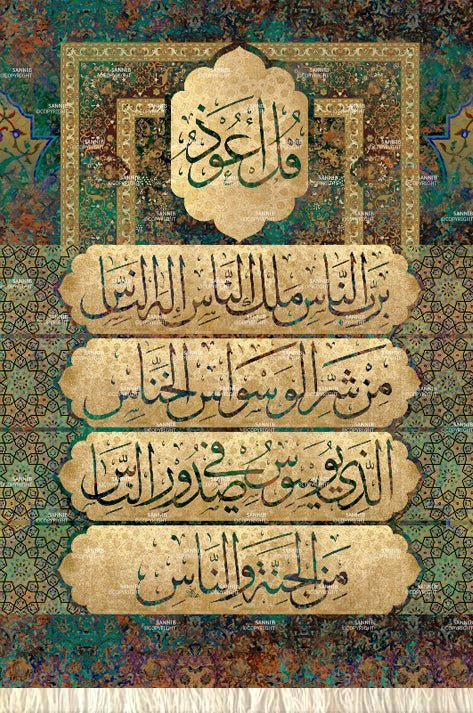 قُلْ أَعُوذُ
بِرَبِّ النَّاسِ مَلِكِ النَّاسِ إِلَٰهِ النَّاسِ
مِنْ شَرِّ الْوَسْوَاسِ الْخَنَّاسِ
الَّذِي يُوَسْوِسُ فِي صُدُورِ النَّاسِ
مِنَ الْجِنَّةِ وَالنَّاسِ
SANNIB
©COPYRIGHT